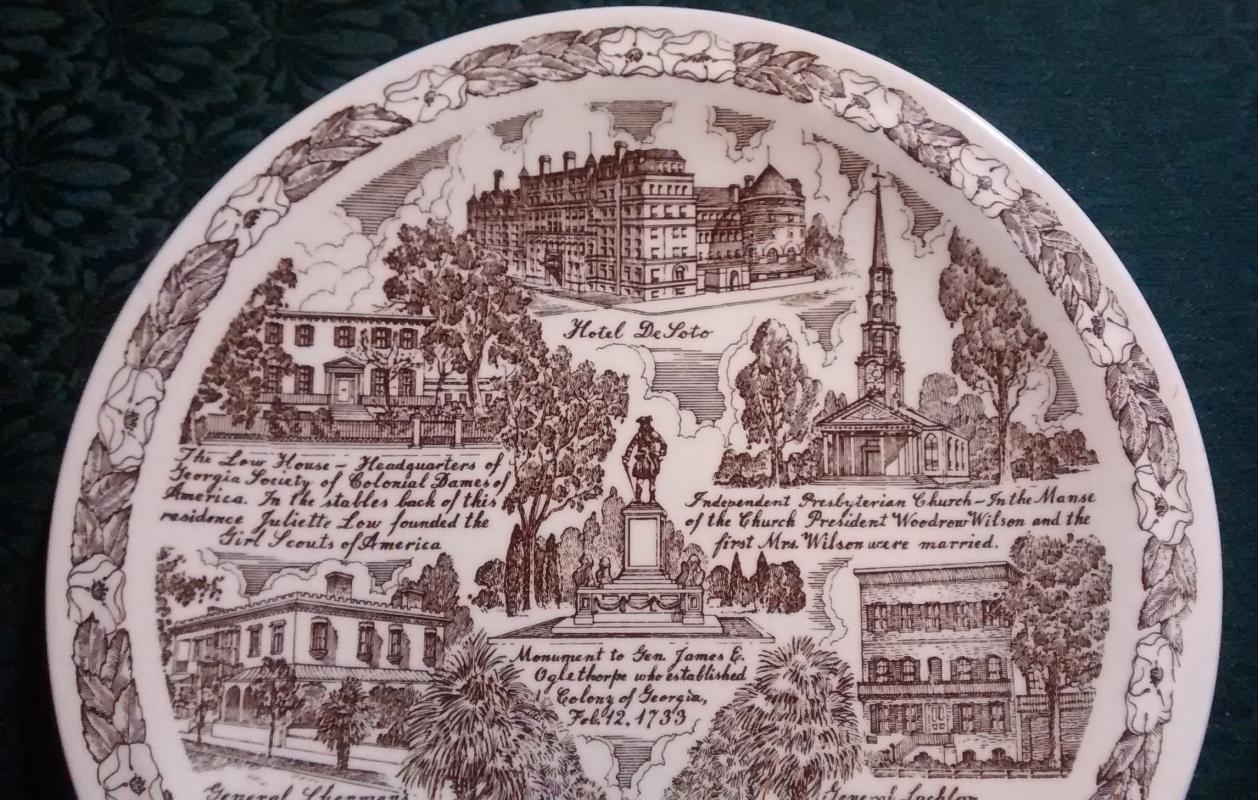 Hotel De Soto
The Low House - Headquarters of
Georgia Society of Colonial Dames of
America. In the stables back of this
residence Juliette Low founded the
Girl Scouts of America
Independent Presbyterian Church - In the Manse
of the Church President Woodrow Wilson and the
first Mrs. Wilson were married.
Monument to Gen. James E.
Oglethorpe who established
Colony of Georgia,
Feb. 12, 1733
General Sherman's
General Lachlan